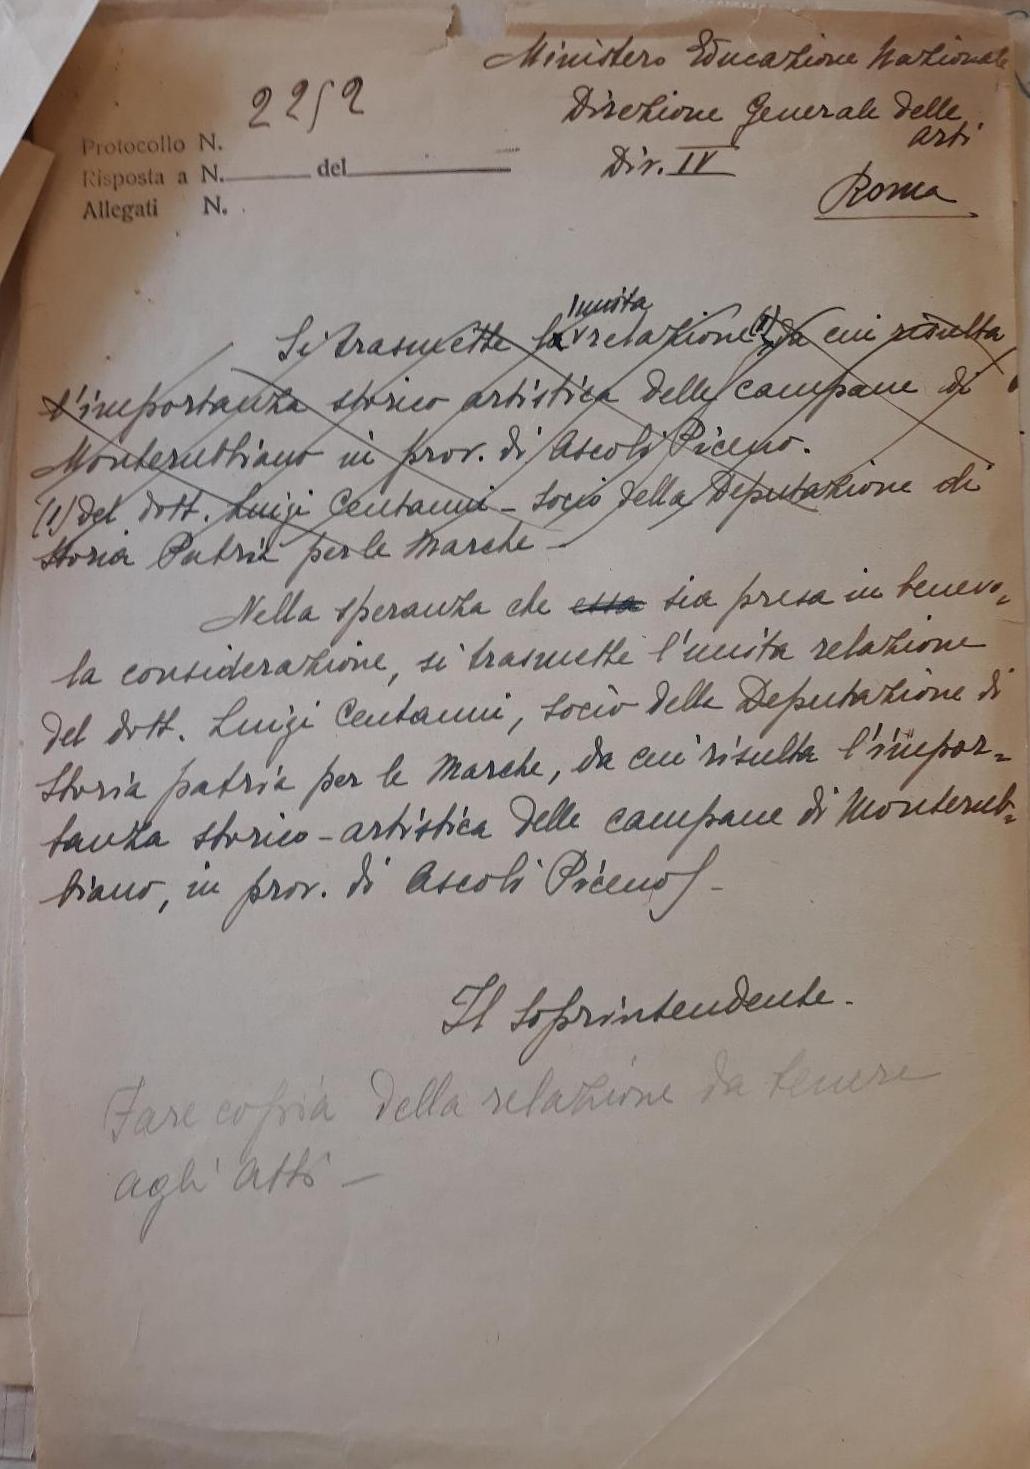 Ministero Educazione Nazionale
Direzione Generale delle
arti
Div. IV
Roma
2252
Protocollo N.
Risposta a N. del
Allegati N.
unita
Si trasmette la relazione (1) da cui risulta
l'importanza storico artistica delle campane di
Monterubbiano in prov. di Ascoli Piceno.
(1) del dott. Luigi Centanni - socio della Deputazione di
storia Patria per le Marche -
Nella speranza che essa sia presa in benevo=
la considerazione, si trasmette l'unita relazione
del dott. Luigi Centanni, socio della Deputazione di
storia patria per le Marche, da cui risulta l'impor=
tanza storico-artistica delle campane di Monterub=
biano, in prov. di Ascoli Piceno -
Il Soprintendente.
Fare copia della relazione da tenere
agli atti -